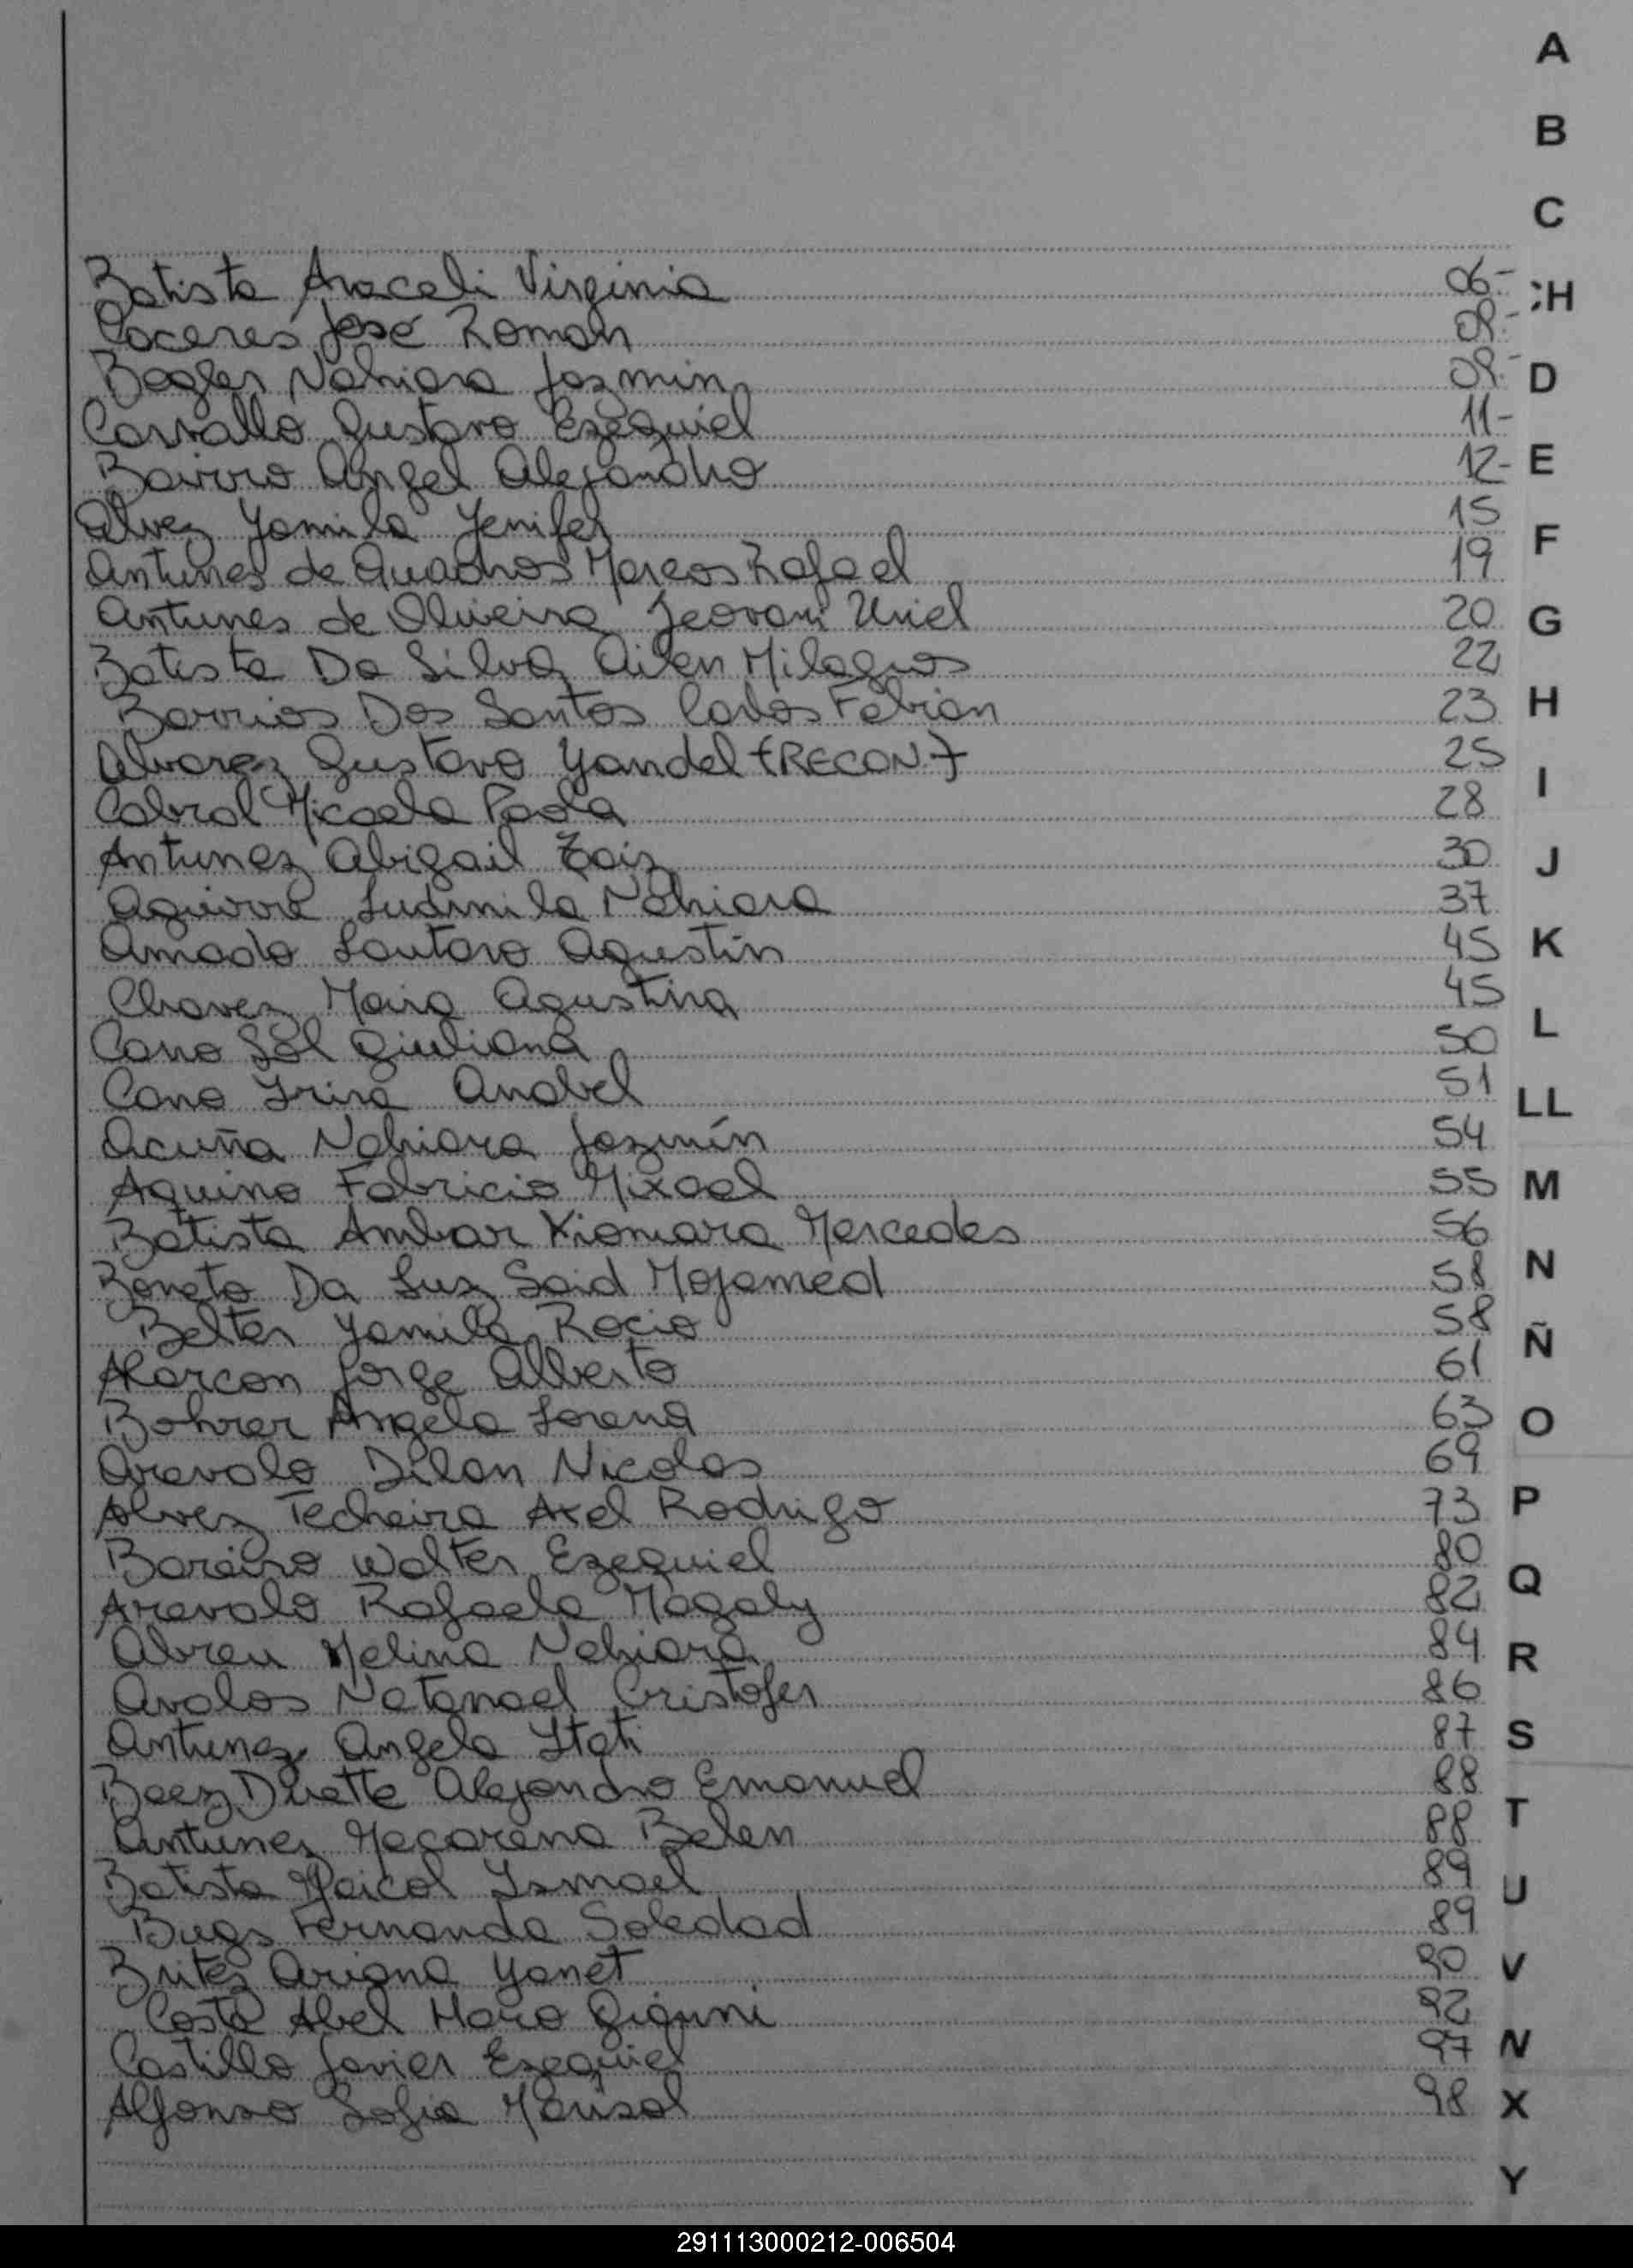 A
B
C
Batista Araceli Virginia 06-
CH
Caceres José Roman 08.-
Bogler Nahiara Jazmin 09.-
D
Carvallo Gustavo Ezequiel 11-
Bairro Angel Alejandro 12-
E
Alvez Yamila Yenifer 15
F
Antunes de Quadros Marcos Rafael 19
Antunes de Oliveira Jeovani Uriel 20
G
Batista Da Silva Ailen Milagros 22
Barrios Dos Santos Carlos Fabian 23
H
Alvarez Gustavo Yandel (RECON.) 25
I
Cabral Micaela Paola 28
Antunez Abigail Taiz 30
J
Aguirre Ludmila Nahiara 37
Amado Lautaro Agustin 45
K
Chavez Maira Agustina 45
L
Cano Sol Giuliana 50
Cano Irina Anabel 51
LL
Acuña Nahiara Jazmín 54
Aquino Fabricio Mixael 55
M
Batista Ambar Xiomara Mercedes 56
Boneto Da Luz Said Mojamed 58
N
Belter Yamila Rocio 58
Ñ
Alarcon Jorge Alberto 61
Bohrer Angela Lorena 63
O
Arevalo Dilan Nicolas 69
Alvez Techeira Axel Rodrigo 73
P
Bareiro Walter Ezequiel 80
Q
Arevalo Rafaela Magaly 82
Abreu Melina Nahiara 84
R
Avalos Natanael Cristofer 86
Antunez Angela Itati 87
S
Baez Duette Alejandro Emanuel 88
T
Antunez Macarena Belen 88
Batista Maicol Ismael 89
U
Bugs Fernanda Soledad 89
Britez Ariana Yanet 90
V
Costa Abel Mario Gianni 92
Castillo Javier Ezequiel 97
X
Alfonso Sofia Marisol 98
Y
291113000212-006504